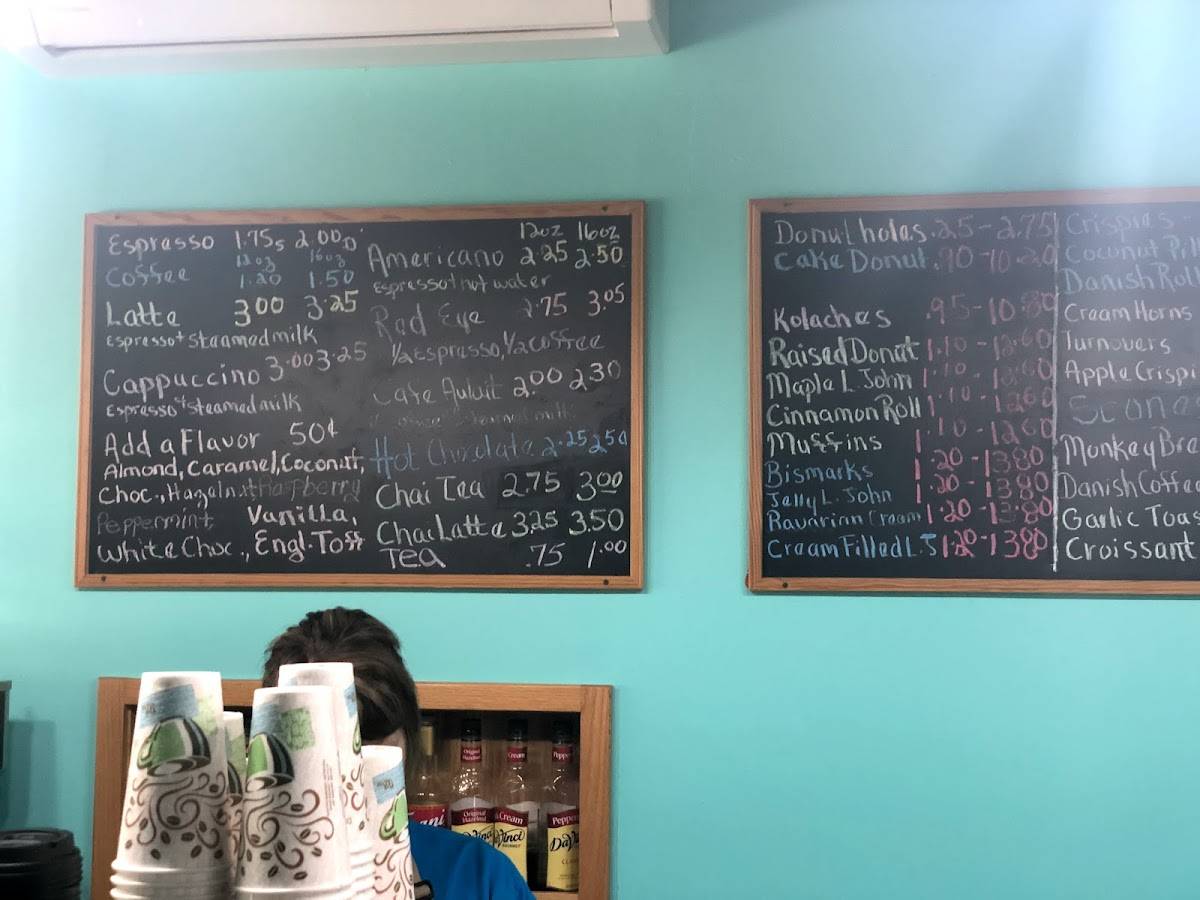 Espresso 1.75s 2.00D
12oz 16oz
Coffee 1.20 1.50
Latte 3.00 3.25
Espresso+Steamed milk
Cappuccino 3.00 3.25
Espresso+Steamed milk
Add a Flavor 50¢
Almond, Caramel, Coconut,
Choc., Hazelnut Raspberry
Peppermint Vanilla,
White Choc., Engl. Toff
12oz 16oz
Americano 2.25 2.50
Espresso+hot water
Red Eye 2.75 3.05
1/2 Espresso, 1/2 Coffee
Cafe Aulait 2.00 2.30
Hot Chocolate 2.25 2.50
Chai Tea 2.75 3.00
Chai Latte 3.25 3.50
Tea .75 1.00
Donut holes .25-2.75
Cake Donut .90-10.20
Kolaches .95-10.80
Raised Donut 1.10-12.60
Maple L. John 1.10-12.60
Cinnamon Roll 1.10-12.60
Muffins 1.10-12.60
Bismarks 1.20-13.80
Jelly L. John 1.20-13.80
Bavarian Cream 1.20-13.80
Cream Filled L.J 1.20-13.80
Crispies -
Coconut
Danish Roll
Cream Horns
Turnovers
Apple Crispi
Scone
Monkey Brea
Danish Coffee
Garlic Toas
Croissant
Original Hazelnut
Cream
DaVinci